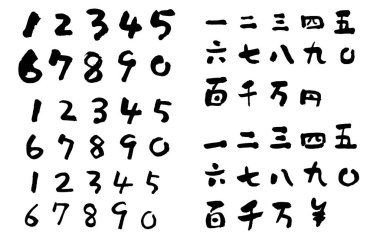 1 2 3 4 5
6 7 8 9 0
1 2 3 4 5
6 7 8 9 0
1 2 3 4 5
6 7 8 9 0
一 二 三 四 五
六 七 八 九 〇
百 千 万 円
一 二 三 四 五
六 七 八 九 〇
百 千 万 ¥